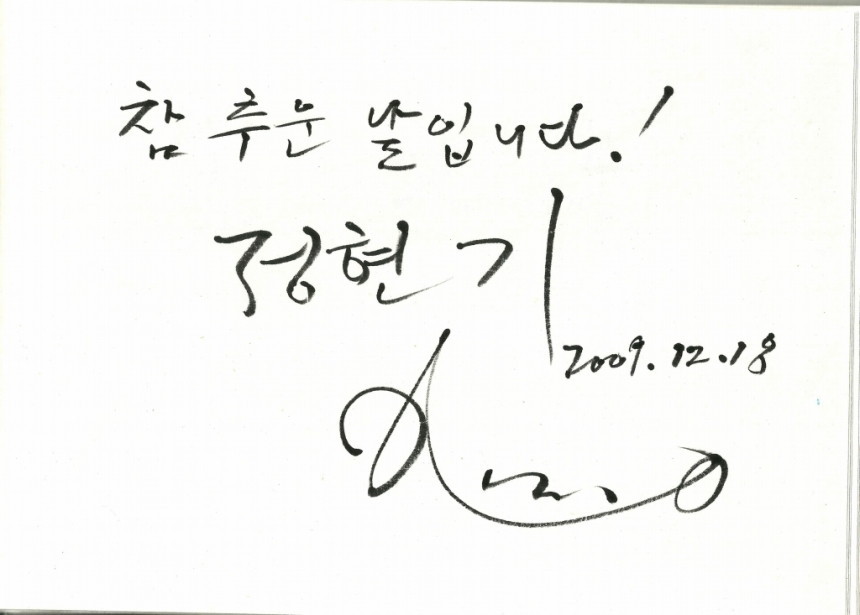 참 추운 날입니다.!
정현기
2009.12.18